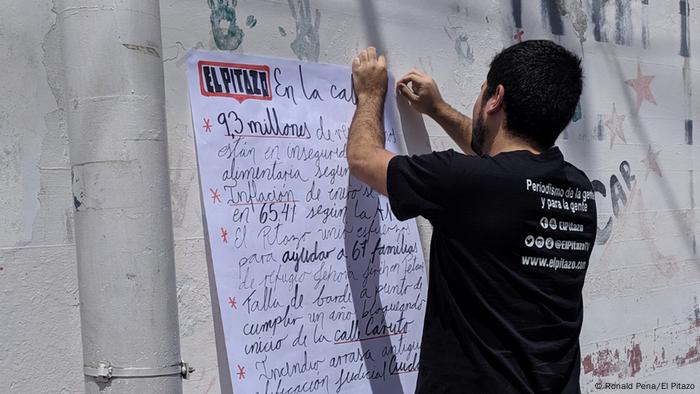 EL PITAZO En la cal
* 9,3 millones de re
están en insegurid
alimentaria según
* Inflación de enero s
en 65.41 según la AN
* El Pitazo unió esfuerzo
para ayudar a 67 familias
de refugio Señora
* Falla de borde a punto de
cumplir un año bloqueando
inicio de la calle Caruto
* Incendio arrasa antigu
edificación judicial
Periodismo de la gente
y para la gente
ElPitazo
@ElPitazoTV
www.elpitazo.com
CAR
© Ronald Pena/El Pitazo